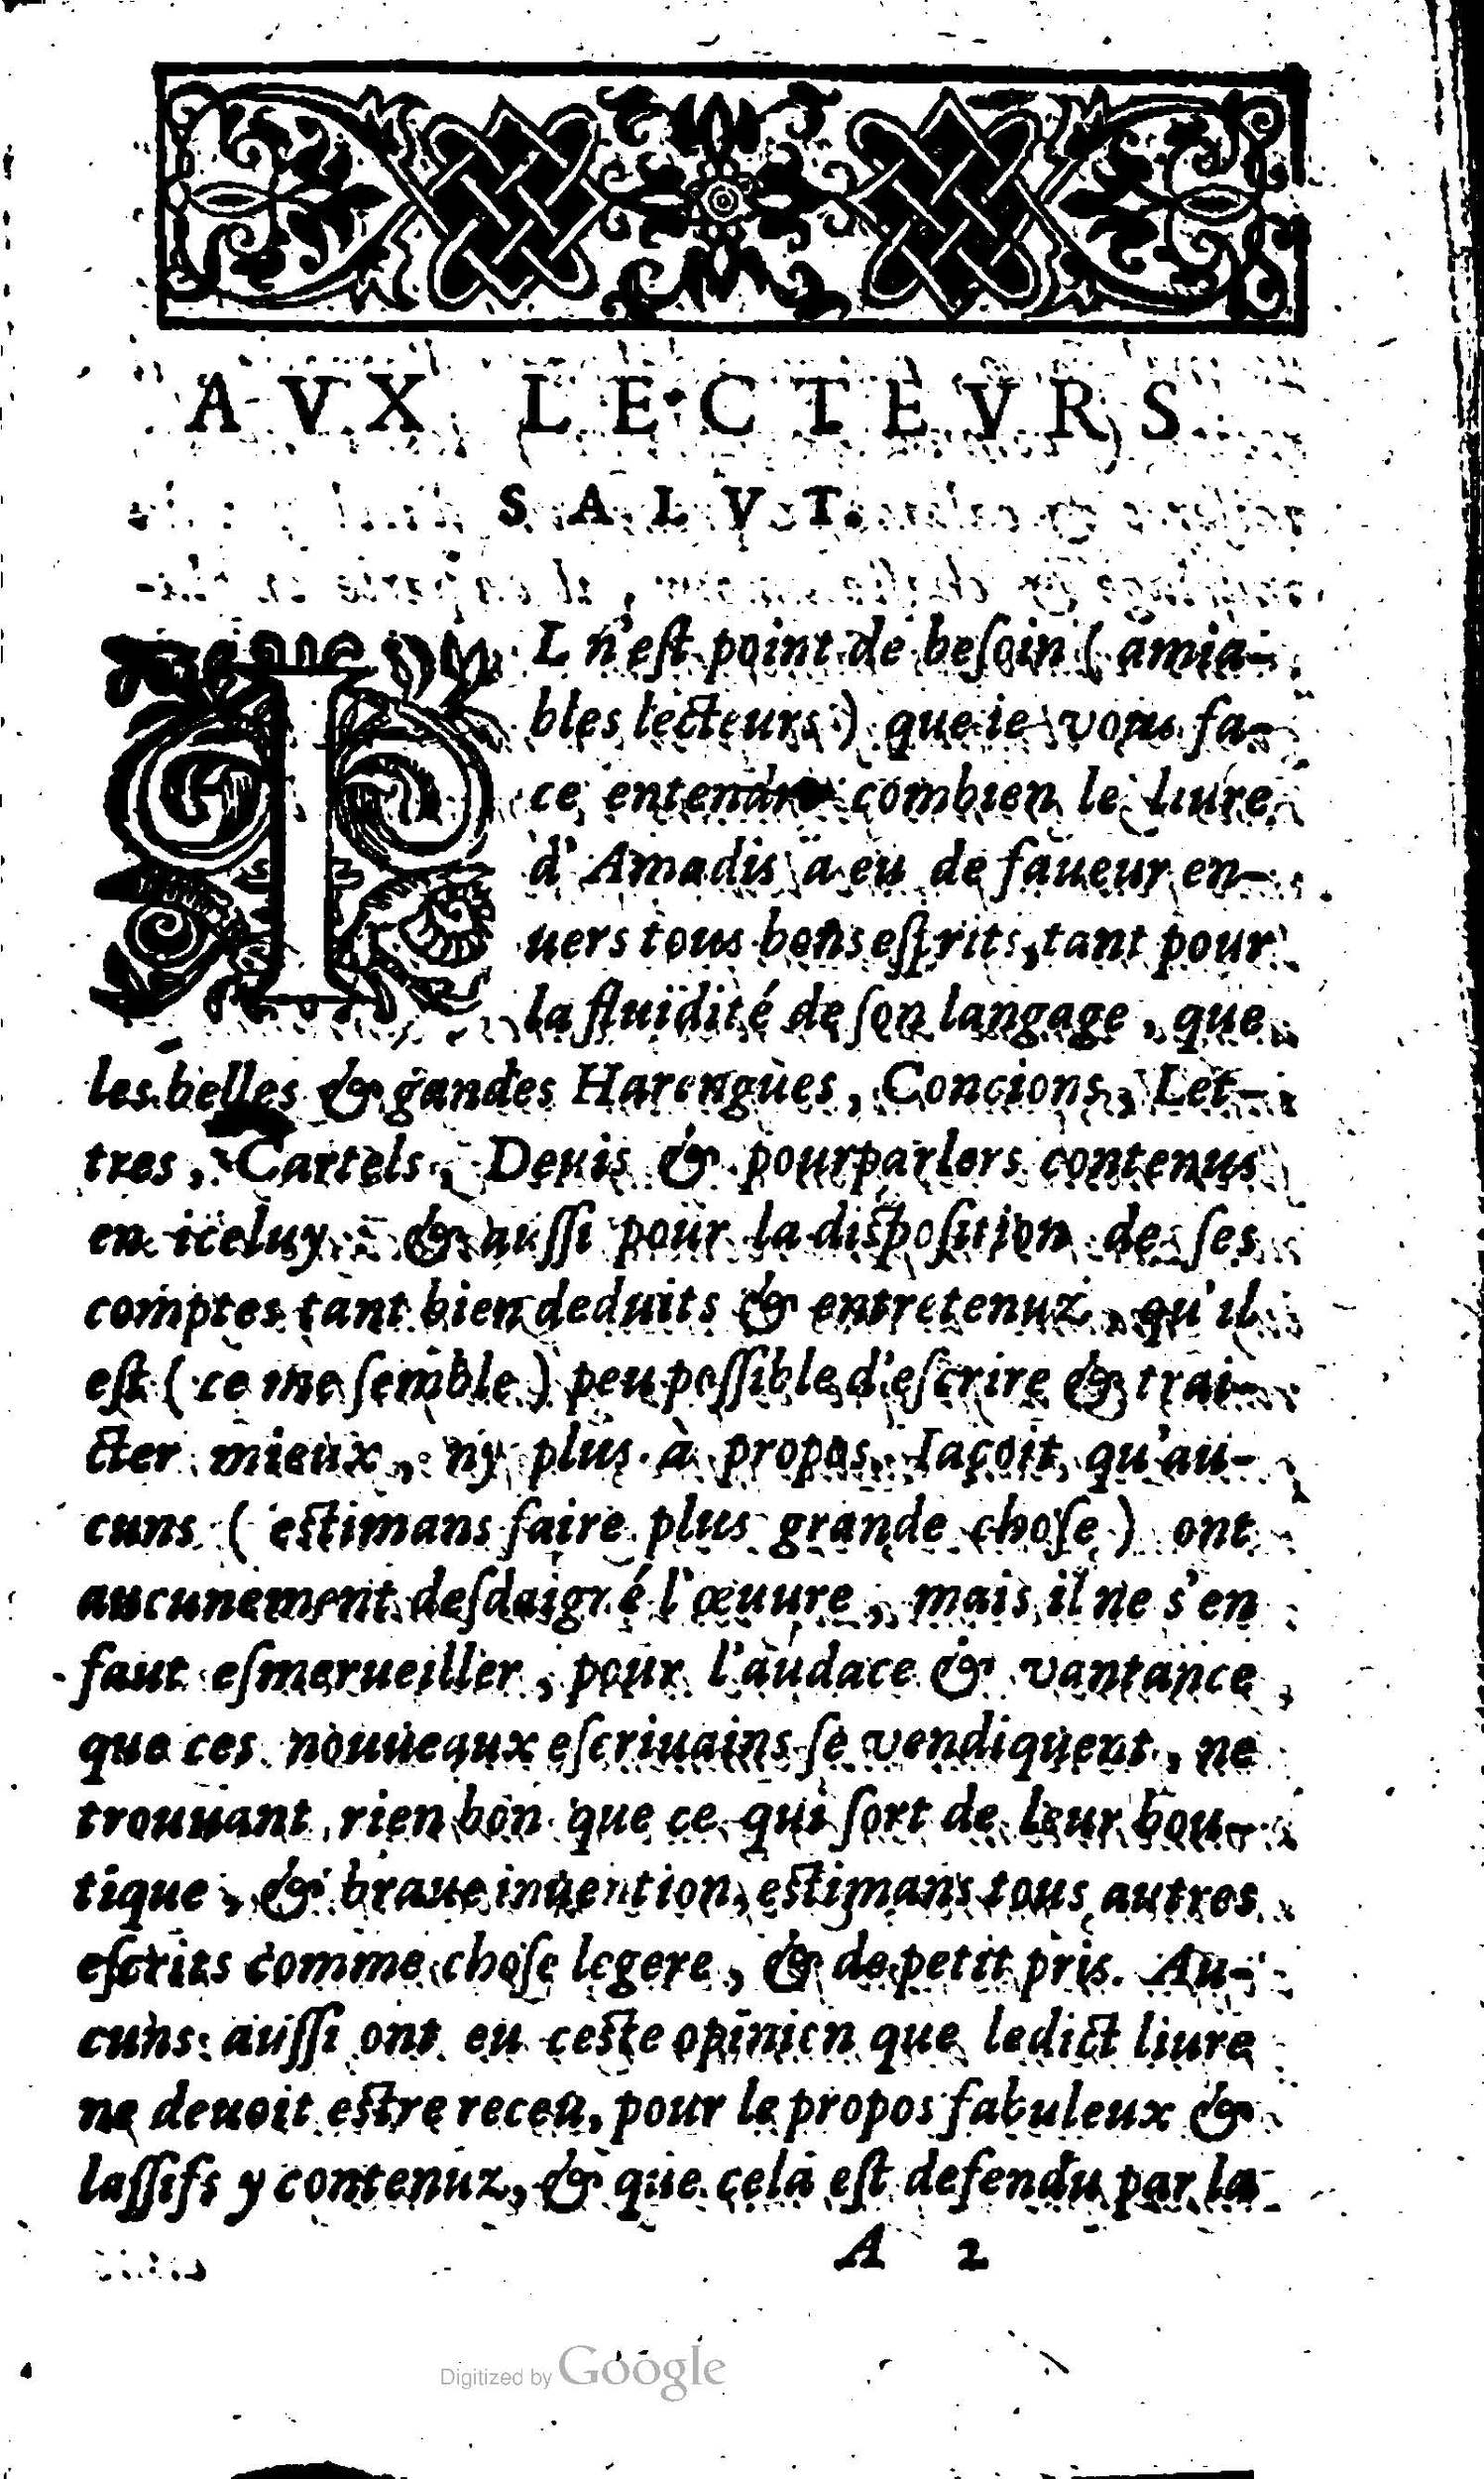 AVX LECTEVRS
SALVT.
IL n'eſt point de beſoin (amia-
bles lecteurs) que ie vous fa-
ce entendre combien le liure
d'Amadis a eu de faueur en-
uers tous bons eſprits, tant pour
la fluïdité de ſon langage, que
les belles & gandes Harengues, Concions, Let-
tres, Cartels, Deuis & pourparlers contenus
en iceluy: & auſſi pour la diſpoſition de ſes
comptes tant bien deduits & entretenuz, qu'il
eſt (ce me ſemble) peu poſſible d'eſcrire & trai-
cter mieux, ny plus à propos. Iaçoit qu'au-
cuns (eſtimans faire plus grande choſe) ont
aucunement deſdaigné l'œuure, mais il ne s'en
faut eſmerueiller, pour l'audace & vantance
que ces nouueaux eſcriuains ſe vendiquent, ne
trouuant rien bon que ce qui ſort de leur bou-
tique, & braue inuention, eſtimans tous autres
eſcrits comme choſe legere, & de petit pris. Au-
cuns auſſi ont eu ceſte opinion que ledict liure
ne deuoit eſtre receu, pour le propos fabuleux &
laſſifs y contenuz, & que cela eſt defendu par la
A 2
Digitized by Google